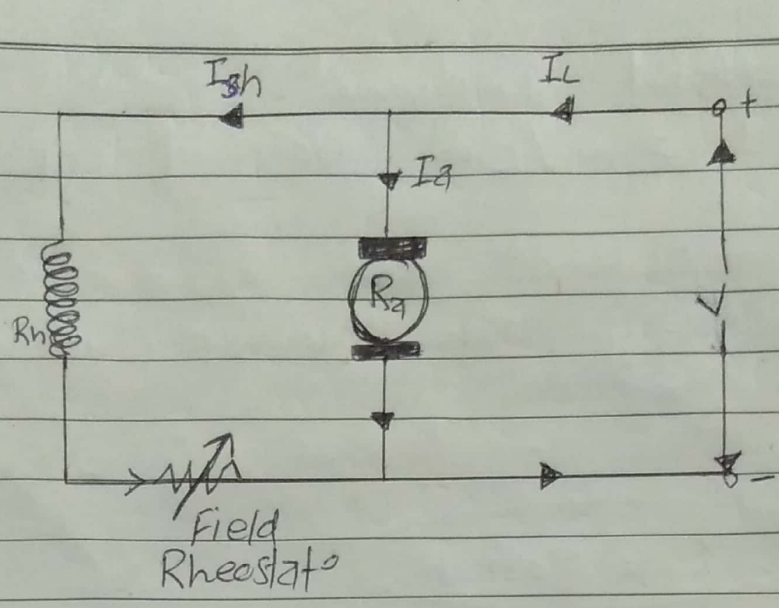 Ish
IL
+
Ia
Ra
V
Rh
-
Field
Rheostato